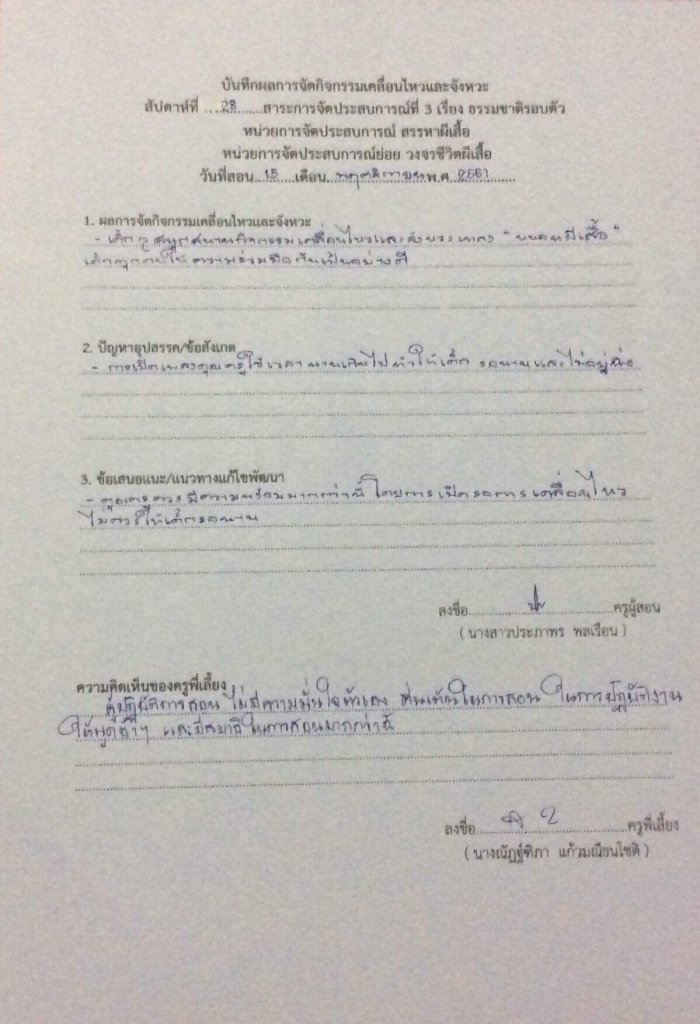 บันทึกผลการจัดกิจกรรมเคลื่อนไหวและจังหวะ
สัปดาห์ที่ ...28......สาระการจัดประสบการณ์ที่ 3 เรื่อง ธรรมชาติรอบตัว
หน่วยการจัดประสบการณ์ สรรหาผีเสื้อ
หน่วยการจัดประสบการณ์ย่อย วงจรชีวิตผีเสื้อ
วันที่สอน...15....เดือน...พฤศจิกายน...พ.ศ...2561......
1. ผลการจัดกิจกรรมเคลื่อนไหวและจังหวะ
- เด็กๆ สนุกสนานกับกิจกรรมเคลื่อนไหวและจังหวะเพลง " หนอนผีเสื้อ "
เด็กทุกคนให้ความร่วมมือกันเป็นอย่างดี
2. ปัญหาอุปสรรค/ข้อสังเกต
- การเปิดเพลงคุณครูใช้เวลานานเกินไป ทำให้เด็ก รอนานและไม่อยู่นิ่ง
3. ข้อเสนอแนะ/แนวทางแก้ไขพัฒนา
- คุณครูควรมีความพร้อมมากกว่านี้ โดยการเปิดรอการเคลื่อนไหว
ไม่ควรให้เด็กรอนาน
ลงชื่อ................ครูผู้สอน
( นางสาวประภาพร พลเรือน )
ความคิดเห็นของครูพี่เลี้ยง
ผู้ปฏิบัติการสอน ไม่มีความมั่นใจตัวเอง ตื่นเต้นในการสอน ในการปฏิบัติงาน
ให้พูดช้าๆ และมีสมาธิในการสอนมากกว่านี้
ลงชื่อ................ครูพี่เลี้ยง
( นางณัฏฐ์ฑิภา แก้วมณีธนโชติ )